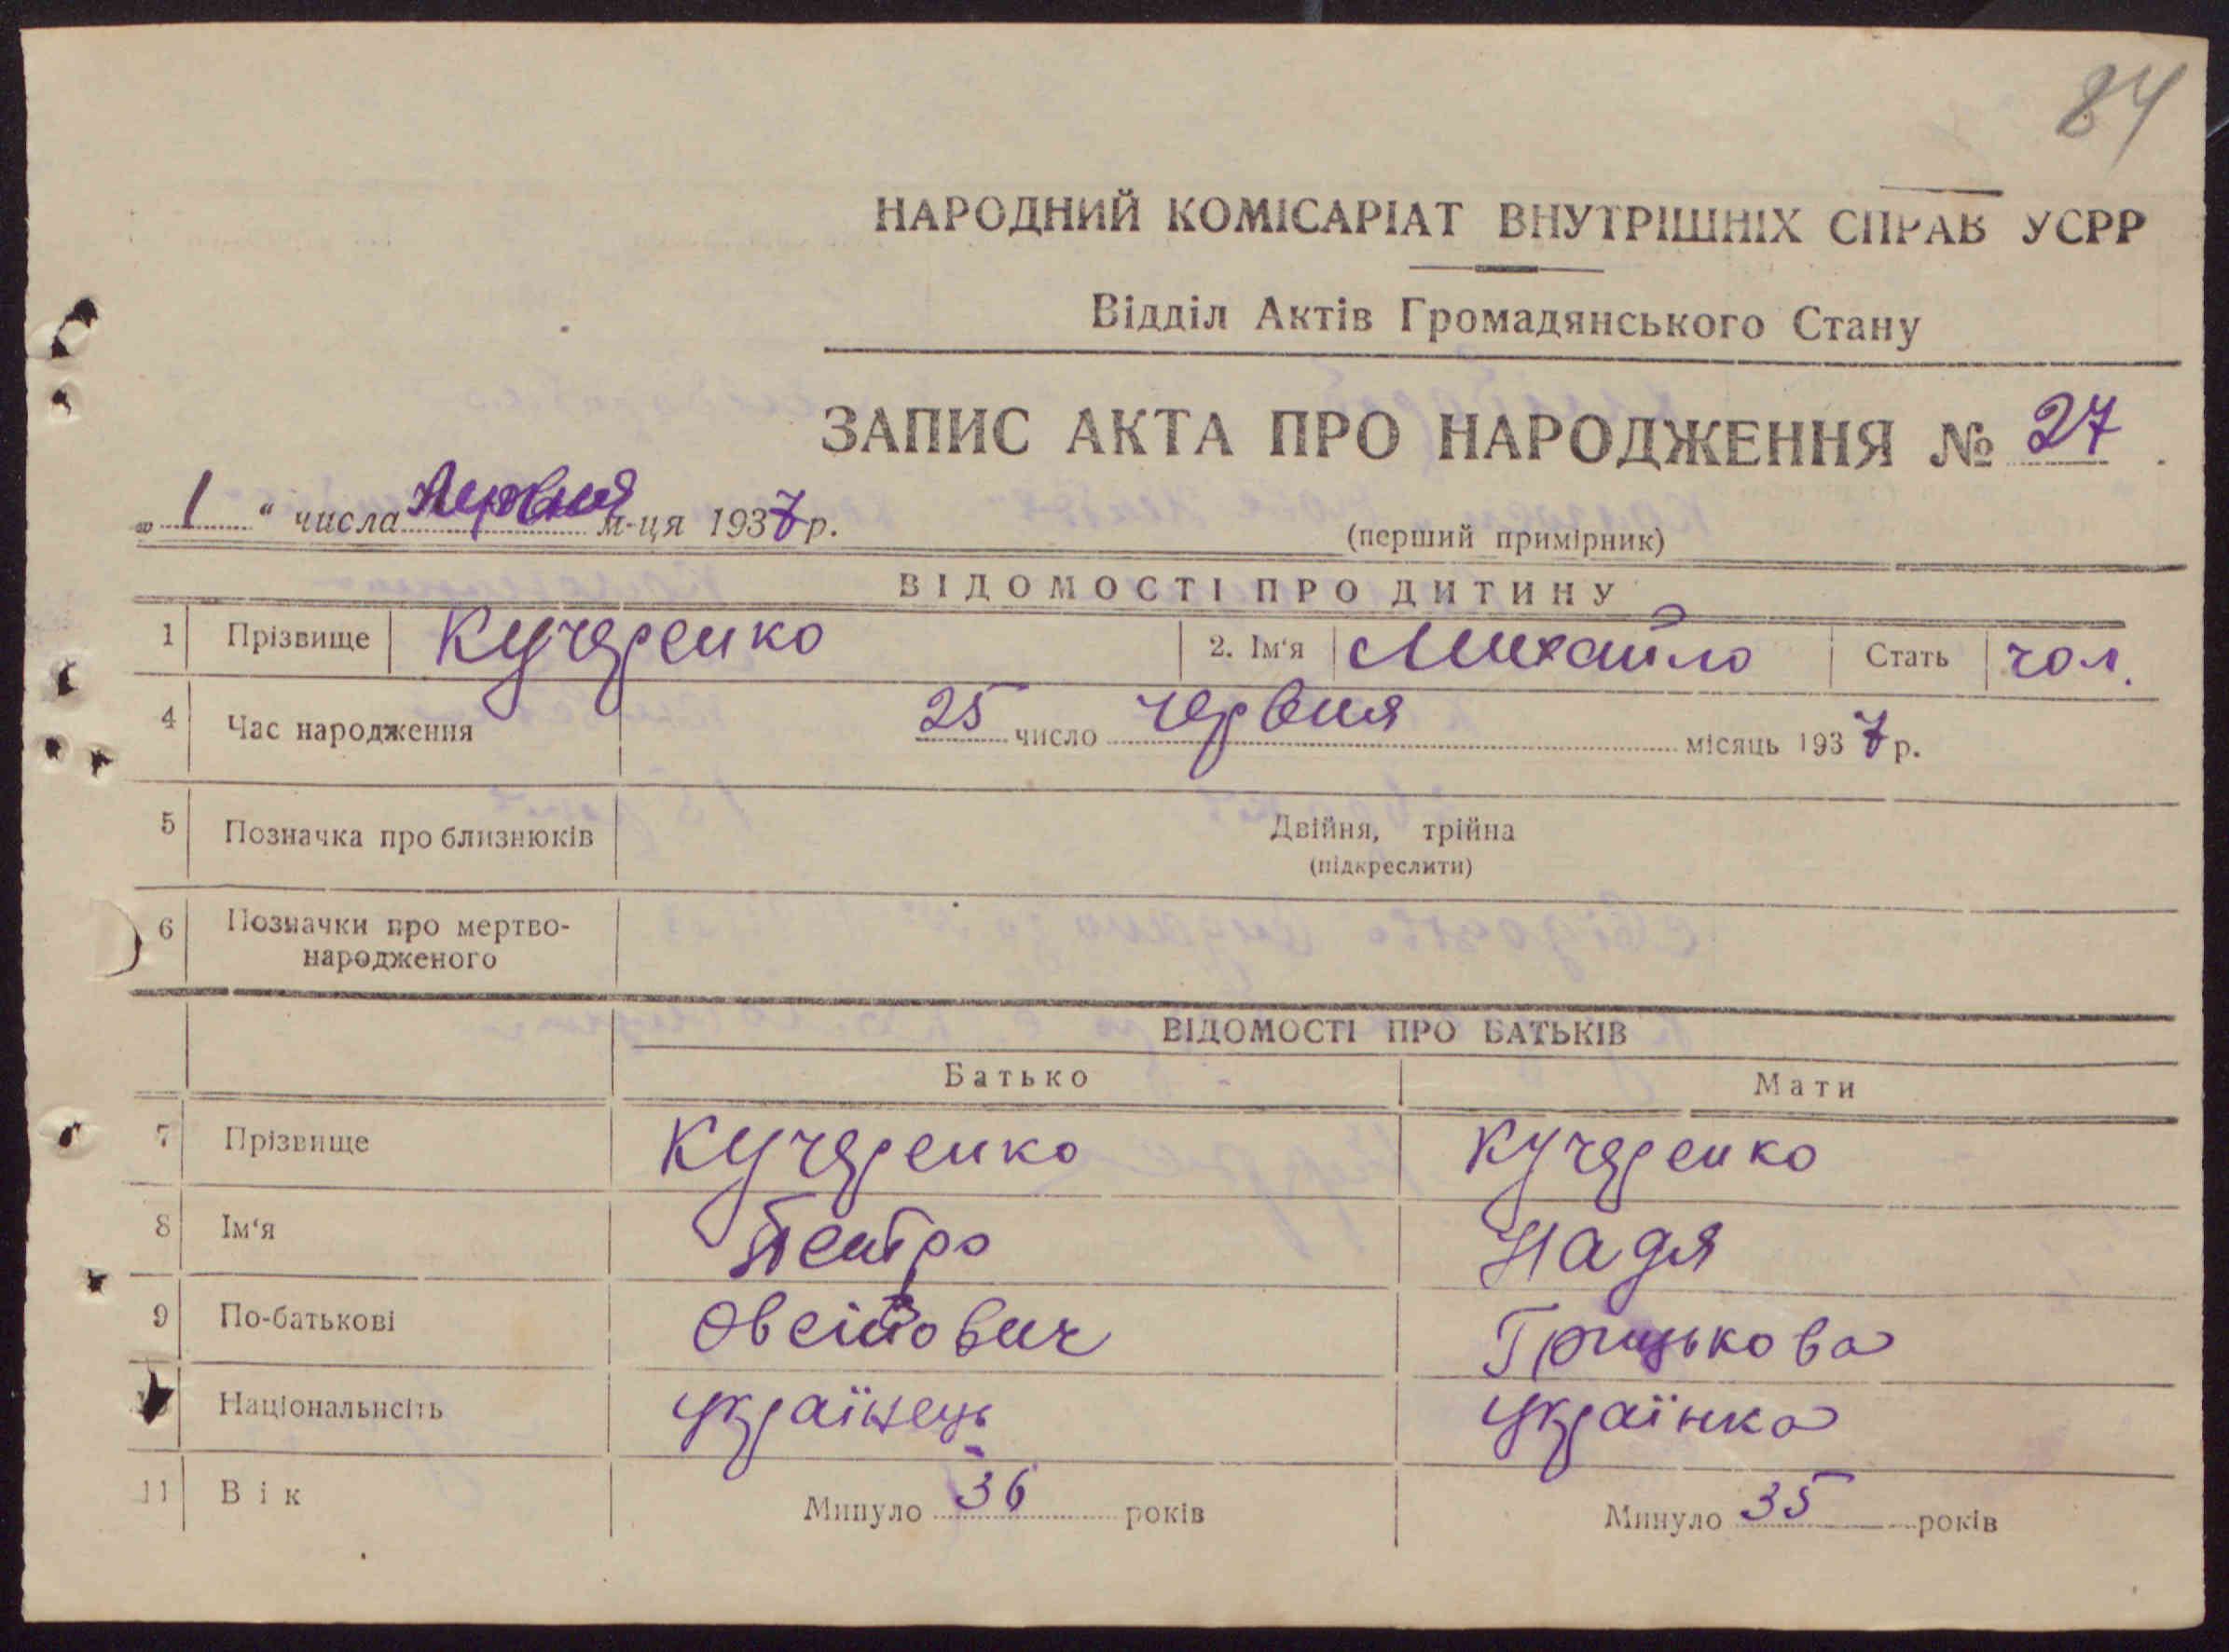 84
НАРОДНИЙ КОМІСАРІАТ ВНУТРІШНІХ СПРАВ УСРР
Відділ Актів Громадянського Стану
ЗАПИС АКТА ПРО НАРОДЖЕННЯ № 27
„ 1 “ числа м-ця 1937 р.
(перший примірник)
ВІДОМОСТІ ПРО ДИТИНУ
1 Прізвище Кучеренко 2. Ім‘я Михайло Стать чол.
4 Час народження 25 число червня місяць 1937 р.
5 Позначка про близнюків Двійня, трійна
(підкреслити)
6 Позначки про мертво-
народженого
ВІДОМОСТІ ПРО БАТЬКІВ
Батько Мати
7 Прізвище Кучеренко Кучеренко
8 Ім‘я Петро Надя
9 По-батькові Грицькова
10 Національнсіть українець українка
11 Вік Минуло 36 років Минуло 35 років